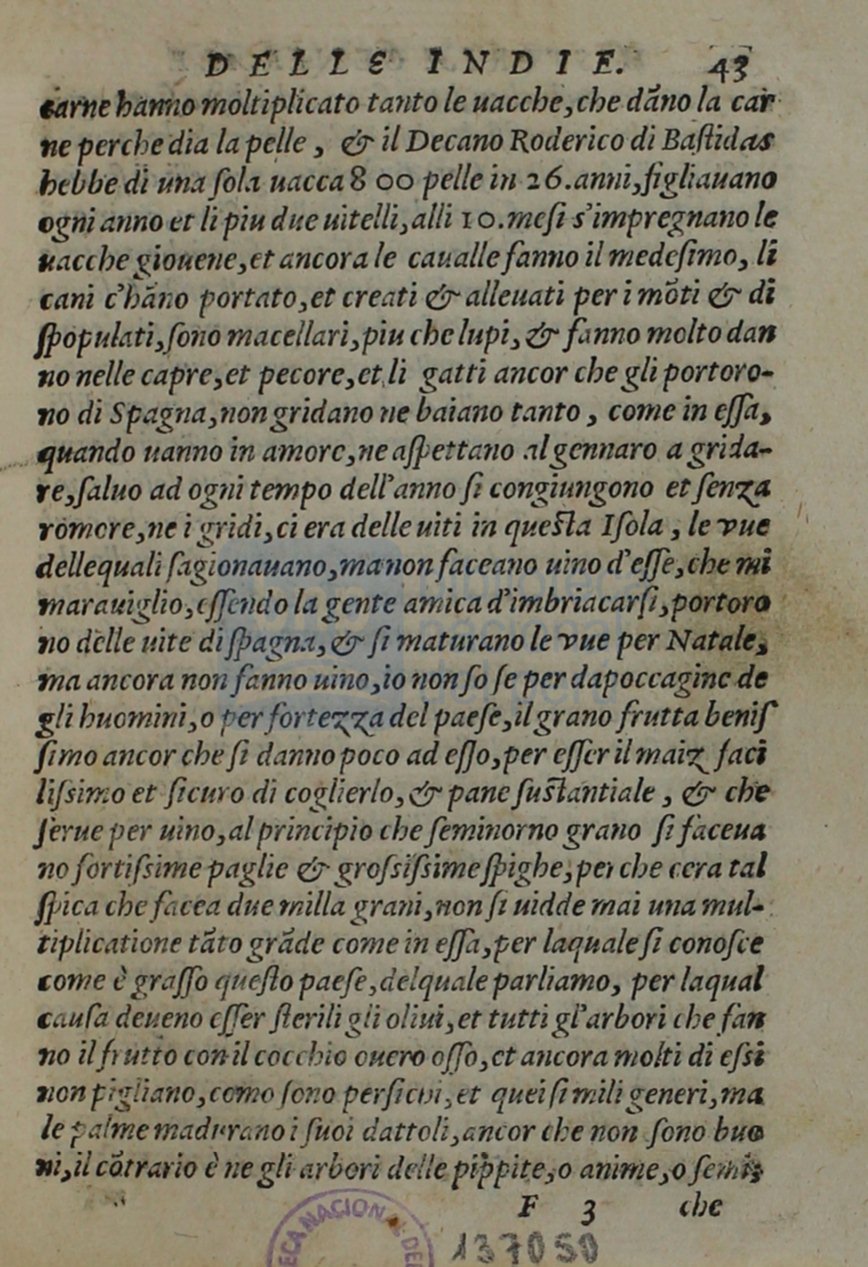 DELLE INDIE. 43
carne hanno moltiplicato tanto le uacche, che dãno la car
ne perche dia la pelle, & il Decano Roderico di Baſtidas
hebbe di una ſola uacca 8 00 pelle in 26. anni, figliauano
ogni anno et li piu due uitelli, alli 10. meſi s'impregnano le
uacche giouene, et ancora le caualle fanno il medeſimo, li
cani c'hãno portato, et creati & alleuati per i mõti & di
ſpopulati, ſono macellari, piu che lupi, & fanno molto dan
no nelle capre, et pecore, et li gatti ancor che gli portoro-
no di Spagna, non gridano ne baiano tanto, come in eſſa,
quando uanno in amore, ne aſpettano al gennaro a grida-
re, ſaluo ad ogni tempo dell'anno ſi congiungono et ſenza
romore, ne i gridi, ci era delle uiti in queſta Iſola, le vue
dellequali ſagionauano, ma non faceano uino d'eſſe, che mi
marauiglio, eſſendo la gente amica d'imbriacarſi, portoro
no delle uite di ſpagna, & ſi maturano le vue per Natale,
ma ancora non fanno uino, io non ſo ſe per dapoccagine de
gli huomini, o per fortezza del paeſe, il grano frutta beniſ
ſimo ancor che ſi danno poco ad eſſo, per eſſer il maiz faci
liſsimo et ſicuro di coglierlo, & pane ſuſtantiale, & che
ſerue per uino, al principio che ſeminorno grano ſi faceua
no fortiſsime paglie & groſsiſsime ſpighe, perche cera tal
ſpica che facea due milla grani, non ſi uidde mai una mul-
tiplicatione tãto grãde come in eſſa, per laquale ſi conoſce
come è graſſo queſto paeſe, delquale parliamo, per laqual
cauſa deueno eſſer ſterili gli oliui, et tutti gl'arbori che fan
no il frutto con il cocchio ouero oſſo, et ancora molti di eſsi
non pigliano, como ſono perſichi, et quei ſimili generi, ma
le palme madurano i ſuoi dattoli, ancor che non ſono buo
ni, il cõtrario è ne gli arbori delle pippite, o anime, o ſemis
F 3 che
137050